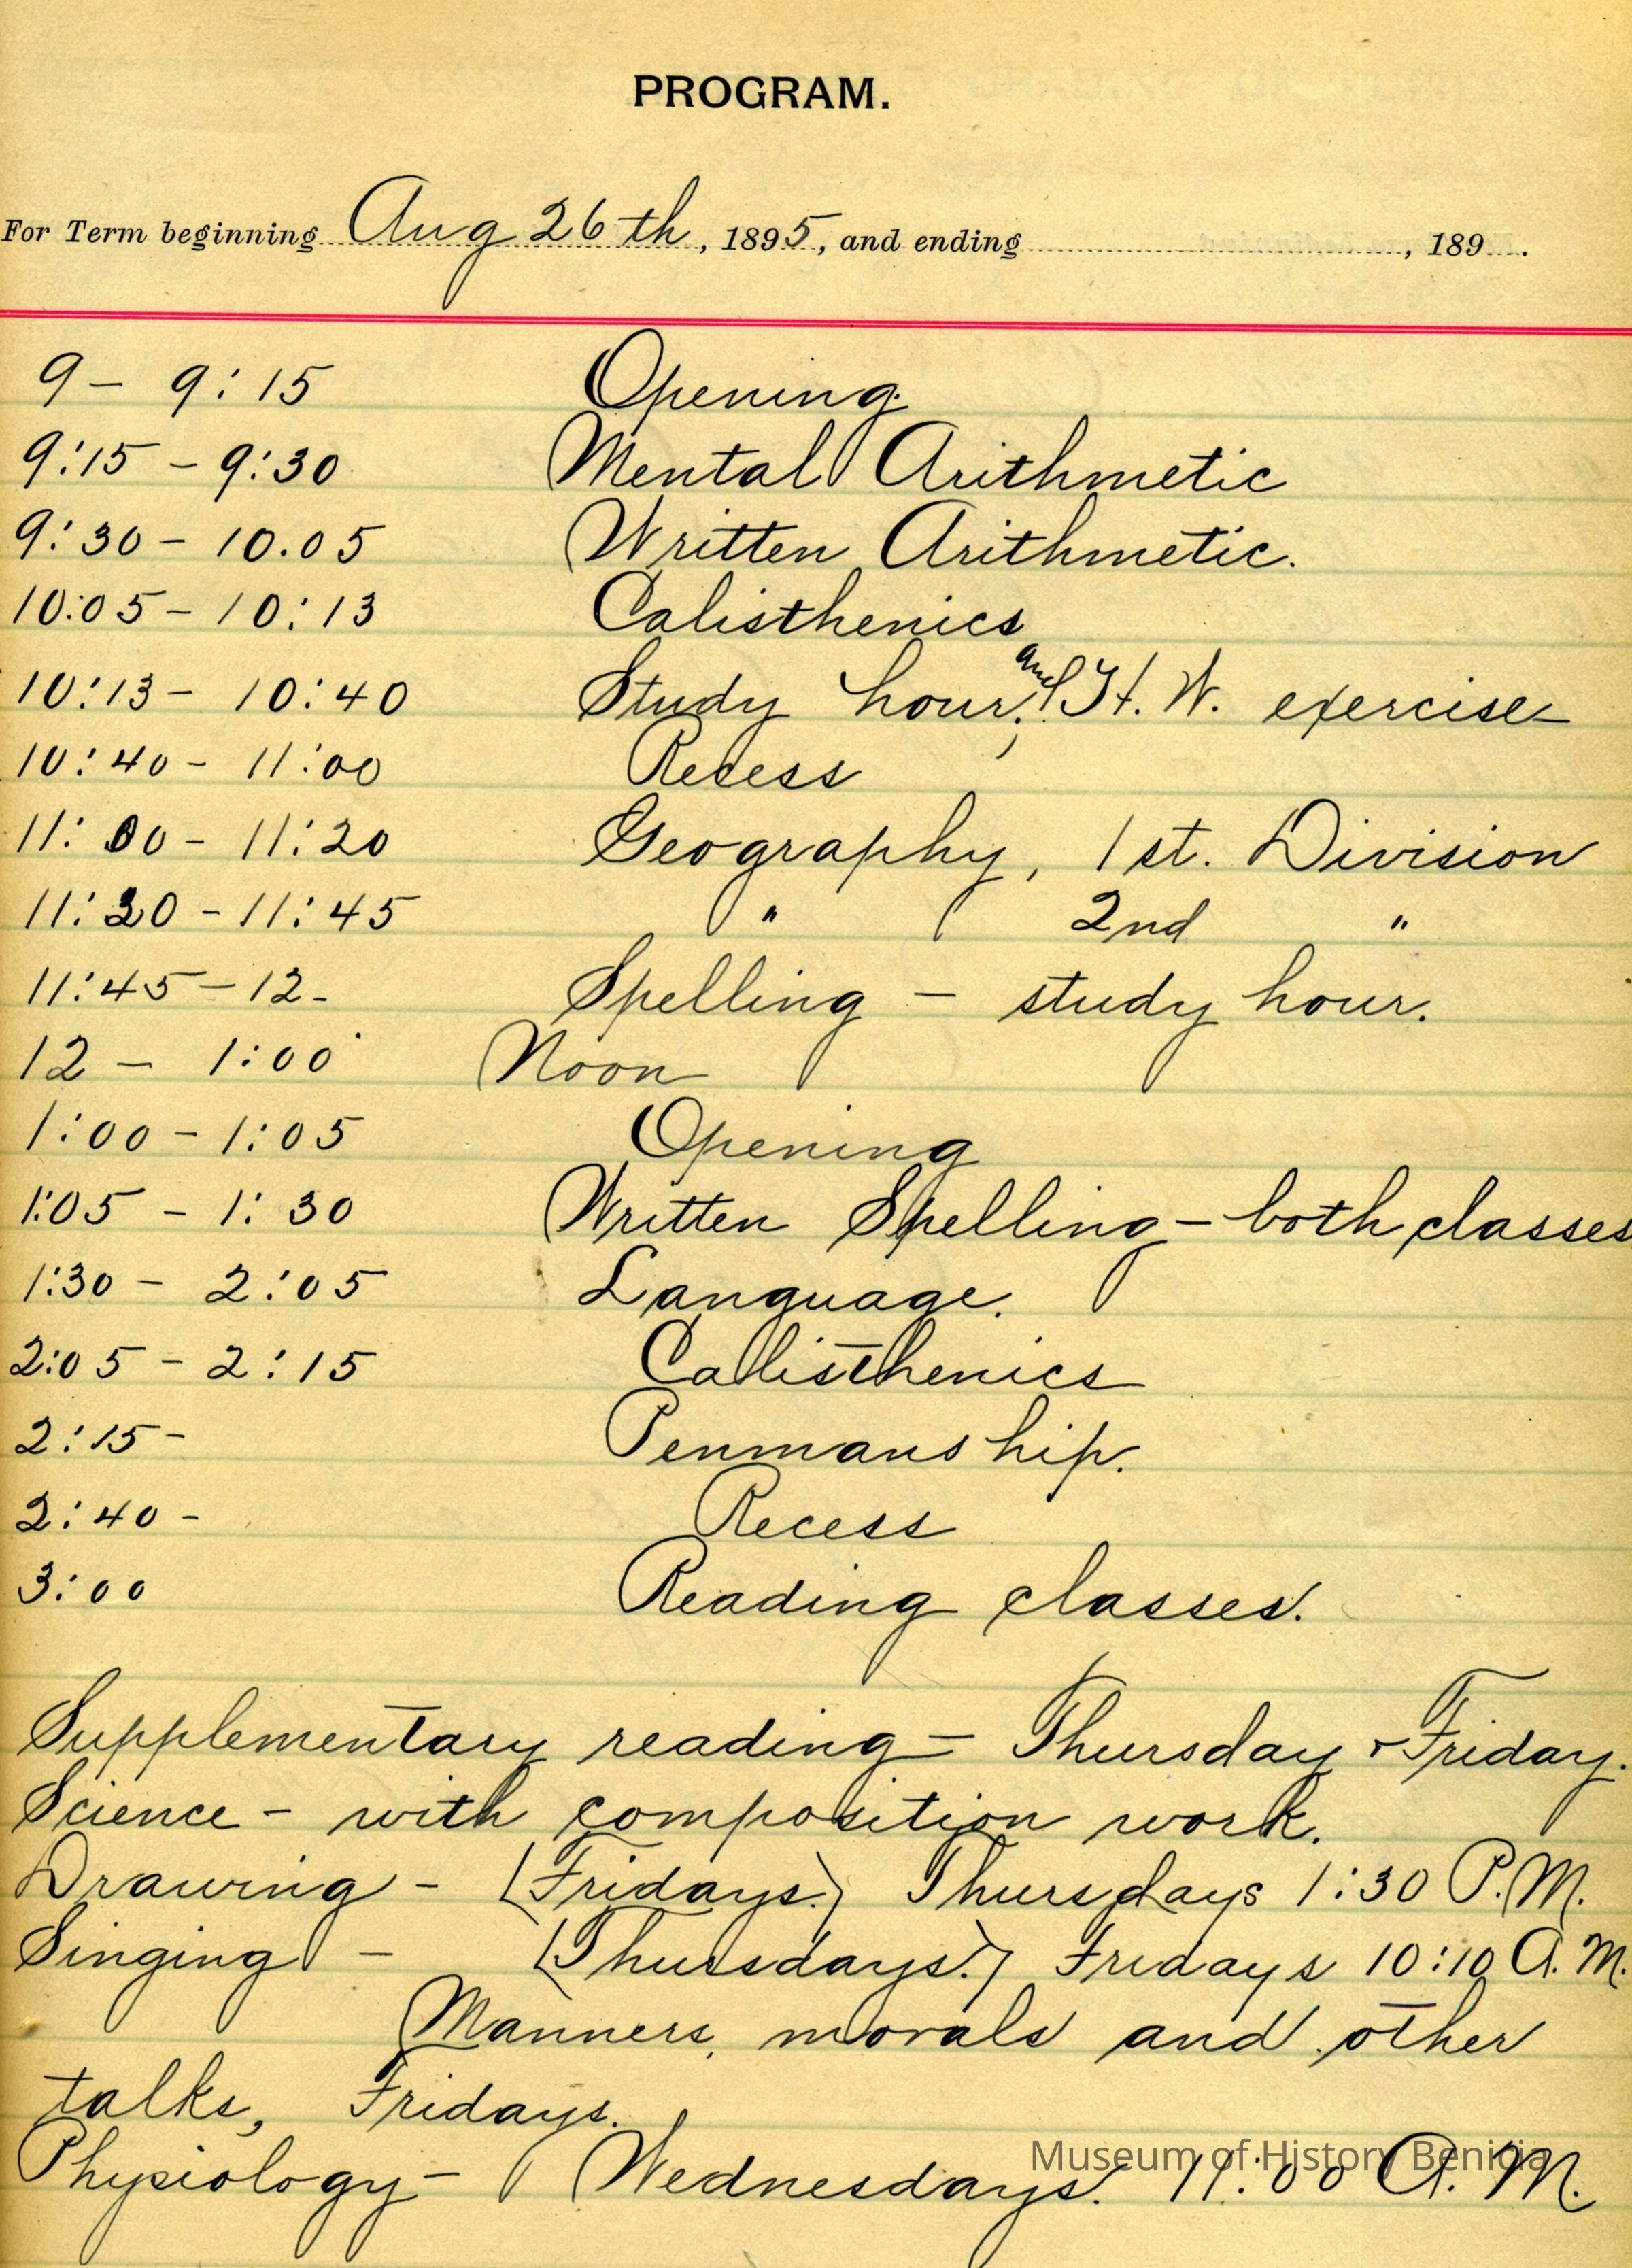 PROGRAM.
For Term beginning Aug 26th, 1895, and ending ........, 189....
9 – 9:15 Opening.
9:15 – 9:30 Mental Arithmetic
9:30 – 10.05 Written Arithmetic.
10:05 – 10:13 Calisthenics
10:13 – 10:40 Study hour, and H. W. exercise
10:40 – 11:00 Recess
11:00 – 11:20 Geography, 1st. Division
11:20 – 11:45 " 2nd "
11:45 – 12 – Spelling – study hour.
12 – 1:00 Noon
1:00 – 1:05 Opening
1:05 – 1:30 Written Spelling – both classes
1:30 – 2:05 Language.
2:05 – 2:15 Callisthenics
2:15 – Penmanship.
2:40 – Recess
3:00 Reading classes.
Supplementary reading – Thursday + Friday.
Science – with composition work.
Drawing – (Fridays.) Thursdays 1:30 P.M.
Singing – (Thursdays.) Fridays 10:10 A.M.
Manners, morals and other
talks, Fridays.
Physiology – Wednesdays. 11:00 A.M.
Museum of History Benicia